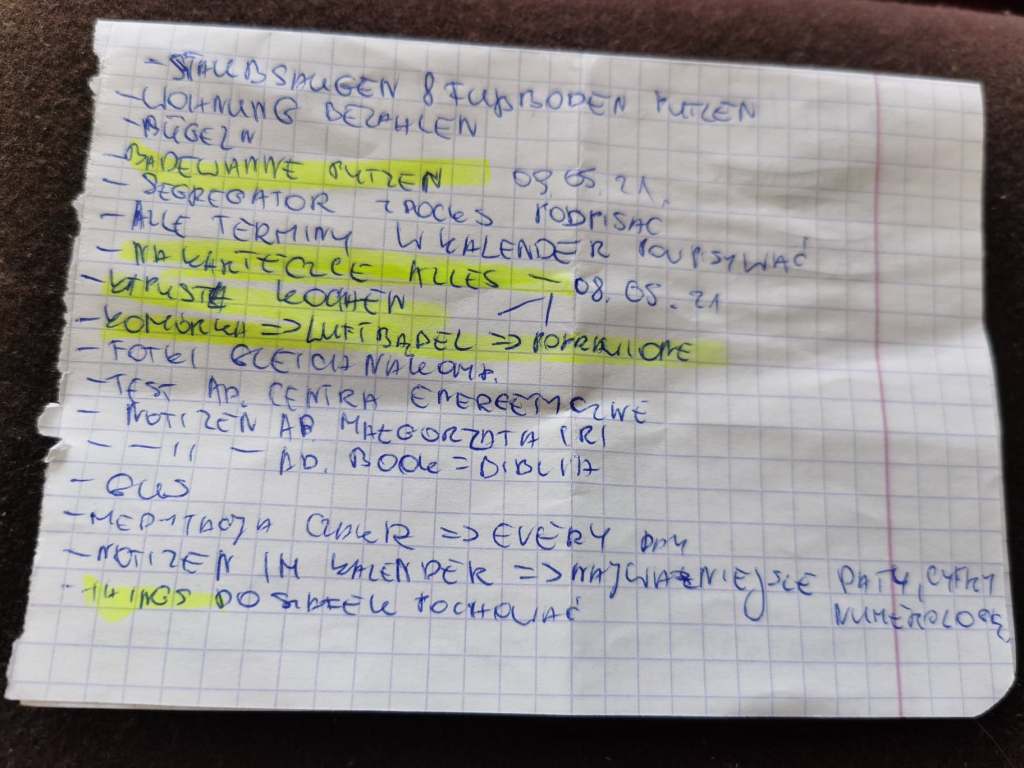 - STAUBSAUGEN & FUßBODEN PUTZEN
- WOHNUNG BEZAHLEN
- BÜGELN
- BADEWANNE PUTZEN 09.05.21.
- SEGREGATOR PODPISAĆ
- ALLE TERMINY W KALENDER POWPISYWAĆ
- NA KARTECZCE ALLES - 08.05.21
- KAPUSTĘ KOCHEN
- KOMÓRKA => =>
- FOTKI
- TEST AD. CENTRA ENERGETYCZNE
- NOTIZEN AD MAŁGORZATA
- - 11 - AD. BOOK = BIBLIJA
-
- MEDYTACJA => EVERY DAY
- NOTIZEN IM KALENDER => NAJWAŻNIEJSZE DATY, CYFRY
- THINGS DO SZAFEK POCHOWAĆ